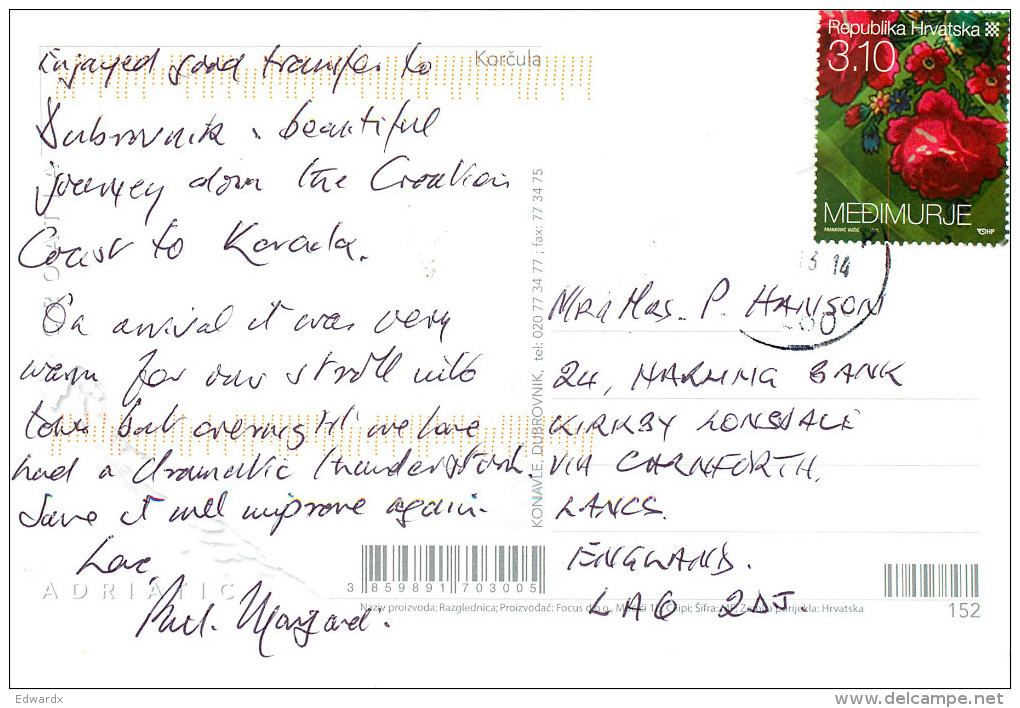 Enjoyed good transfer to
Dubrovnik. beautiful
journey down the Croatian
Coast to Korcula.
On arrival it was very
warm for our stroll into
town but overnight we have
had a dramatic thunderstorm.
Sure it will improve again.
Love,
Margaret.
Korčula
CROATIA
ADRIATIC
KONAVLE, DUBROVNIK, tel: 020 77 34 77 ; fax: 77 34 75
3 859891 703005
Naziv proizvoda: Razglednica; Proizvođač: Focus d.o.o., Čilipi; Šifra: Zemlja porijekla: Hrvatska
152
Republika Hrvatska
3.10
MEĐIMURJE
FRANKOVIĆ VUČIĆ
HP
3 14
MR & MRS. P. HANSON
24, HARLING BANK
KIRKBY LONSDALE
VIA CARNFORTH,
LANCS.
ENGLAND.
LA6 2DJ.
Edwardx
www.delcampe.net